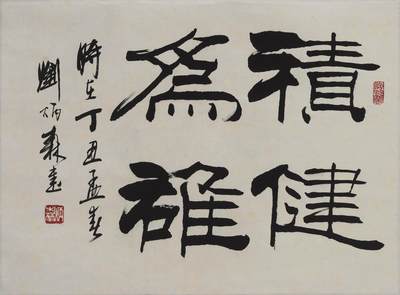 積健
為雄
時在丁丑孟春
劉炳森書